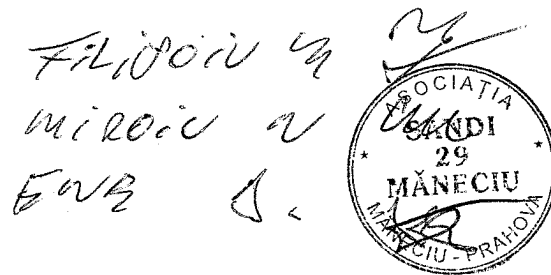 FILIPOIU
MIROIU N
ENE
ASOCIAȚIA
SANDI
29
MĂNECIU
MĂNECIU - PRAHOVA